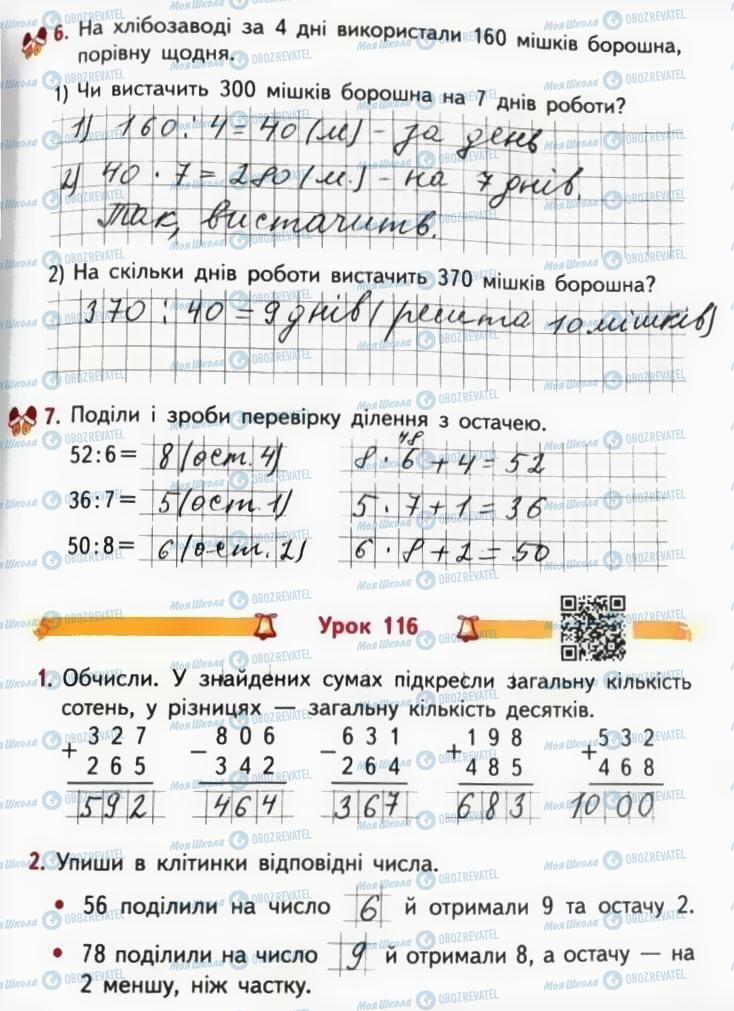 6. На хлібозаводі за 4 дні використали 160 мішків борошна,
порівну щодня.
1) Чи вистачить 300 мішків борошна на 7 днів роботи?
1) 160 : 4 = 40 (м) - за день
2) 40 · 7 = 280 (м.) - на 7 днів.
Так, вистачить.
2) На скільки днів роботи вистачить 370 мішків борошна?
370 : 40 = 9 днів (решта 10 мішків)
7. Поділи і зроби перевірку ділення з остачею.
48
52:6= 8 (ост. 4) 8 · 6 + 4 = 52
36:7= 5 (ост. 1) 5 · 7 + 1 = 36
50:8= 6 (ост. 2) 6 · 8 + 2 = 50
Урок 116
1. Обчисли. У знайдених сумах підкресли загальну кількість
сотень, у різницях — загальну кількість десятків.
+ 327 − 806 − 631 + 198 + 532
265 342 264 485 468
592 464 367 683 1000
2. Упиши в клітинки відповідні числа.
• 56 поділили на число 6 й отримали 9 та остачу 2.
• 78 поділили на число 9 й отримали 8, а остачу — на
2 меншу, ніж частку.
Моя Школа OBOZREVATEL